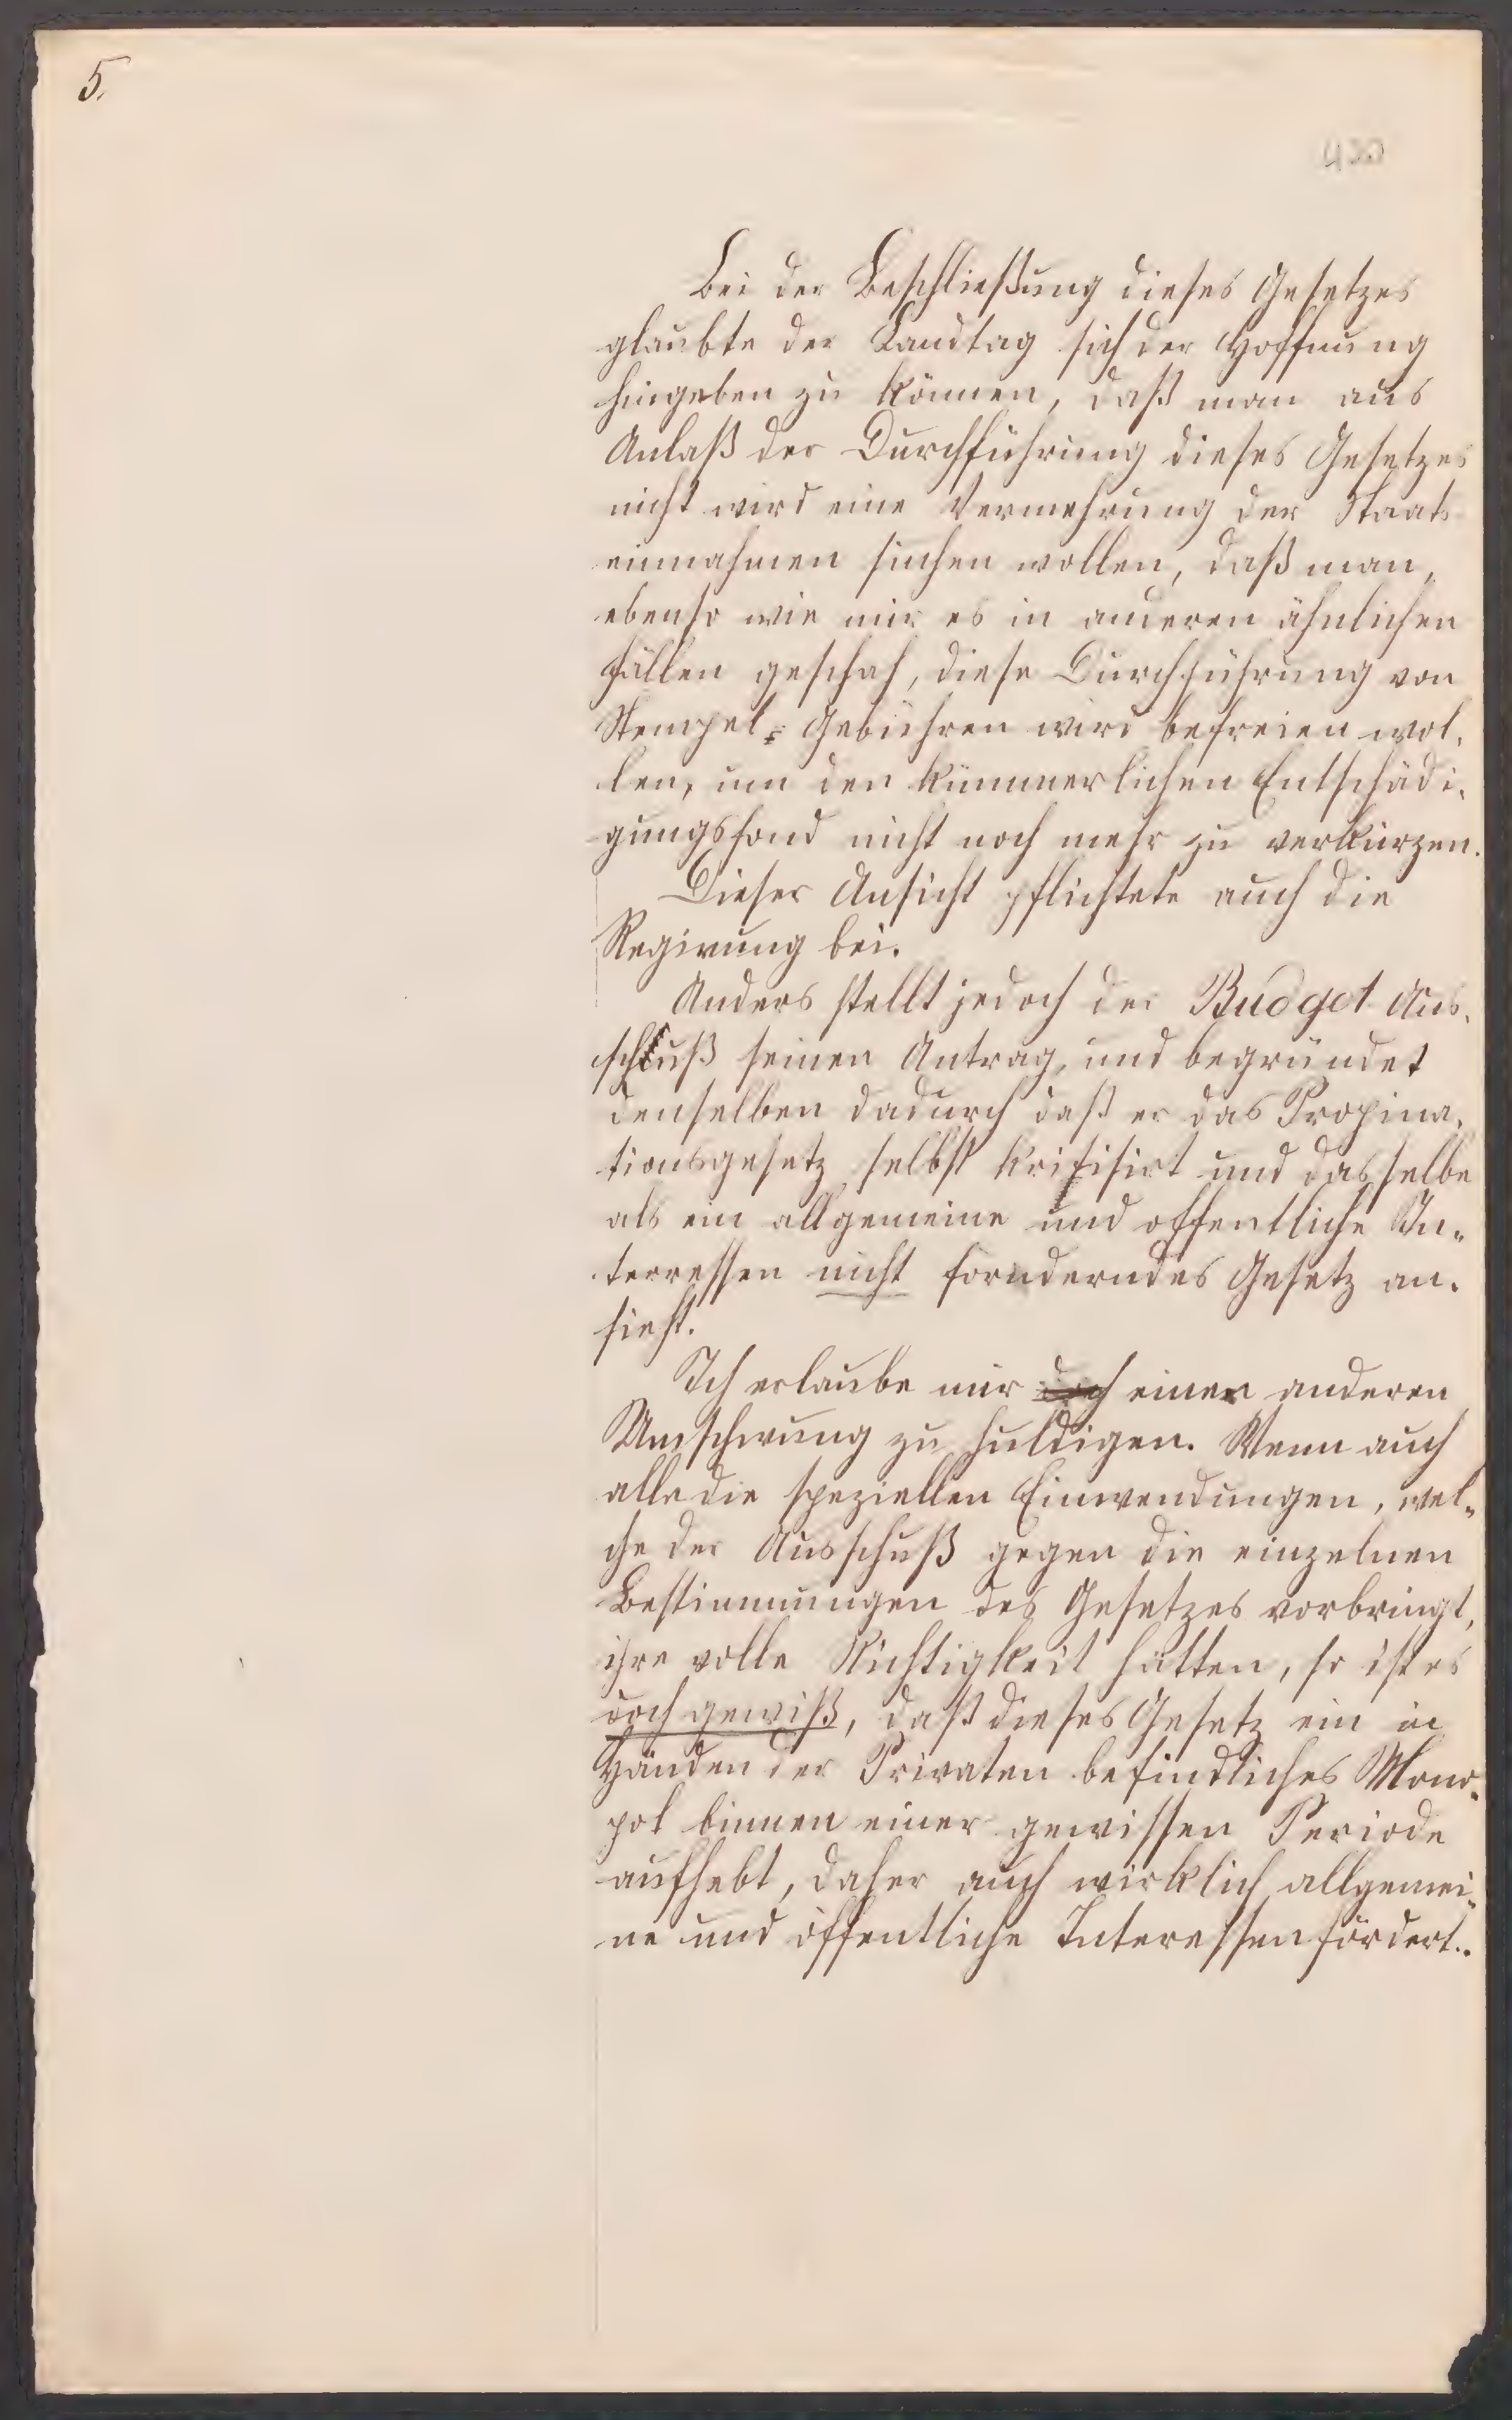 5.
Bei der Beschließung dieses Gesetzes
glaubte der Landtag sich der Hoffnung
hingeben zu können, daß man aus
Anlaß der Durchführung dieses Gesetzes
nicht wird eine Vermehrung der Staats
einnahmen suchen wollen, daß man,
ebenso wie nur es in anderen ähnlichen
Fällen geschah, diese Durchführung von
Stempel-Gebühren wird befreien wol-
len, um den kümmerlichen Entschädi-
gungsfond nicht noch mehr zu verkürzen.
Dieser Ansicht pflichtete auch die
Regirung bei.
Anders stellt jedoch der Budget Aus-
schuß seinen Antrag, und begründet
denselben dadurch daß er das Propina-
tionsgesetz selbst kritisirt und dasselbe
als ein allgemeine und offentliche In-
terressen nicht fornderndes Gesetz an-
sieht.
Ich erlaube mir doch einer anderen
Umschwung zu huldigen. Wenn auch
alle die speziellen Einwendungen, wel-
che der Ausschuß gegen die einzelnen
Bestimmungen des Gesetzes vorbringt,
ihre volle Richtigkeit hätten, so ist es
doch gewiß, daß dieses Gesetz ein in
Händen der Privaten befindliches Mono-
pol binnen einer gewissen Periode
aufhebt, daher auch wirklich allgemei-
ne und öffentliche Interessen fördert.